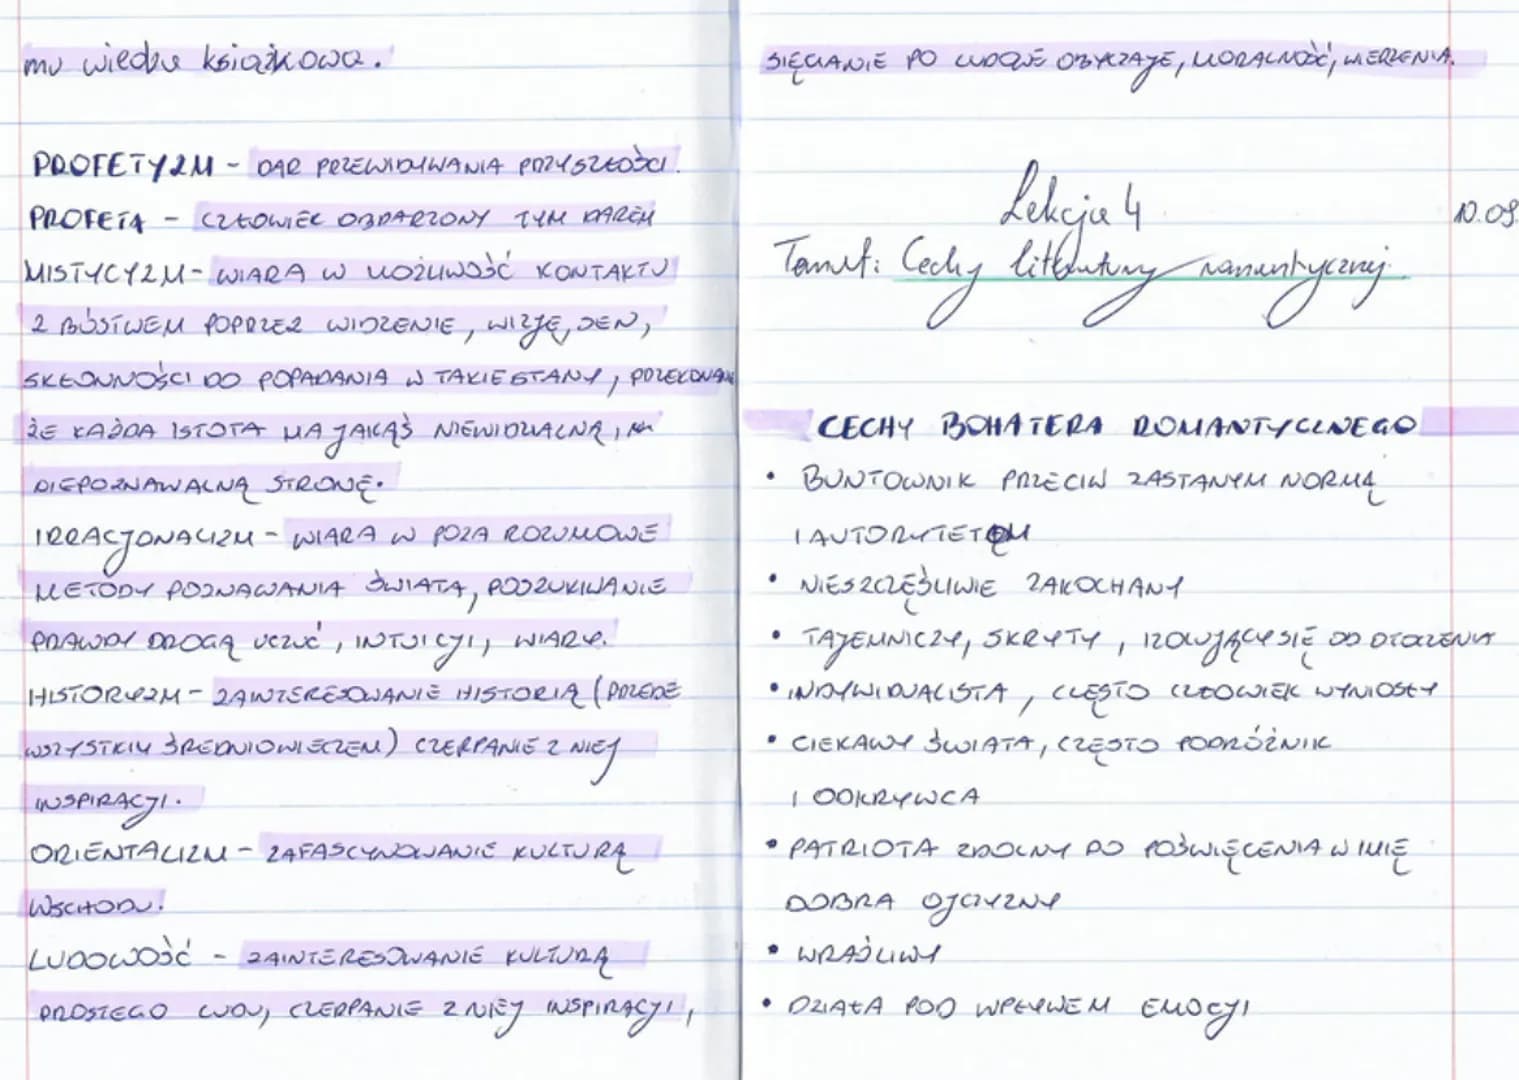 mu wiedzę książkową.
PROFETYZM - DAR PRZEWIDYWANIA PRZYSZŁOŚCI.
PROFETA - CZŁOWIEK OBDARZONY TYM DAREM
MISTYCYZM - WIARA W MOŻLIWOŚĆ KONTAKTU
Z BÓSTWEM POPRZEZ WIDZENIE, WIZJĘ, SEN,
SKŁONNOŚCI DO POPADANIA W TAKIE STANY, PRZEKONANIE
ŻE KAŻDA ISTOTA MA JAKĄŚ NIEWIDZIALNĄ,
NIEPOZNAWALNĄ STRONĘ.
IRRACJONALIZM - WIARA W POZA ROZUMOWE
METODY POZNAWANIA ŚWIATA, POSZUKIWANIE
PRAWDY DROGĄ UCZUĆ, INTUICJI, WIARY.
HISTORYZM - ZAINTERESOWANIE HISTORIĄ (PRZEDE
WSZYSTKIM ŚREDNIOWIECZEM) CZERPANIE Z NIEJ
INSPIRACJI.
ORIENTALIZM - ZAFASCYNOWANIE KULTURĄ
WSCHODU.
LUDOWOŚĆ - ZAINTERESOWANIE KULTURĄ
PROSTEGO LUDU, CZERPANIE Z NIEJ INSPIRACJI,
SIĘGANIE PO LUDOWE OBYCZAJE, MORALNOŚĆ, WIERZENIA.
Lekcja 4
10.09.
Temat: Cechy literatury romantycznej.
CECHY BOHATERA ROMANTYCZNEGO
• BUNTOWNIK PRZECIW ZASTANYM NORMĄ
I AUTORYTETOM
• NIESZCZĘŚLIWIE ZAKOCHANY
• TAJEMNICZY, SKRYTY, IZOLUJĄCY SIĘ OD OTOCZENIA
• INDYWIDUALISTA, CZĘSTO CZŁOWIEK WYNIOSŁY
• CIEKAWY ŚWIATA, CZĘSTO PODRÓŻNIK
I ODKRYWCA
• PATRIOTA ZDOLNY DO POŚWIĘCENIA W IMIĘ
DOBRA OJCZYZNY
• WRAŻLIWY
• DZIAŁA POD WPŁYWEM EMOCJI